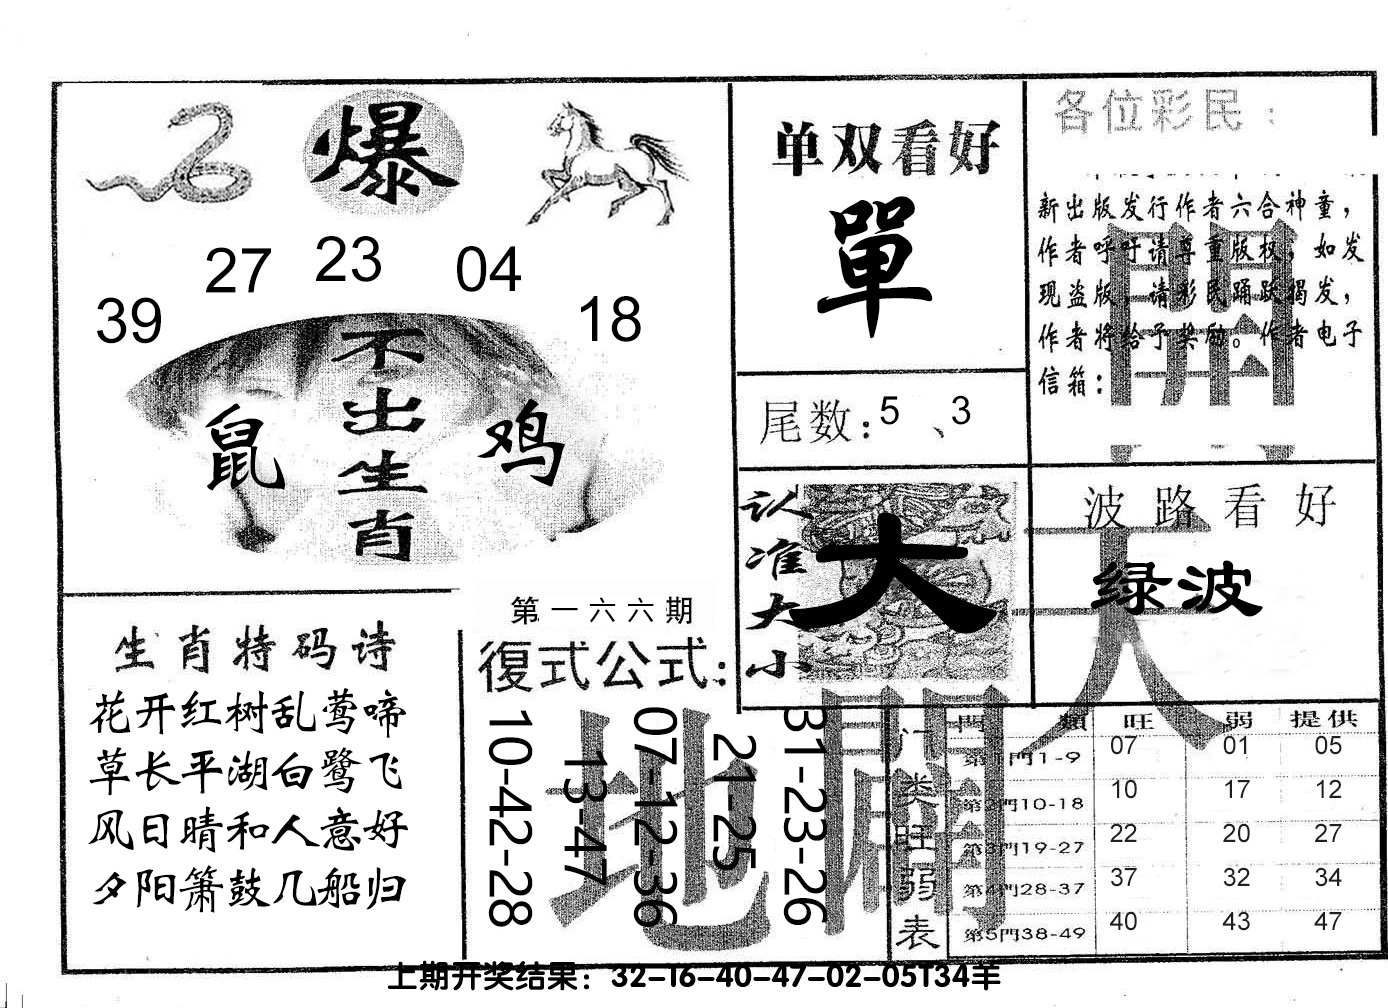 爆
27 23 04
39 18
不出生肖
鼠 鸡
单双看好
單
尾数:5、3
认准大小
大
各位彩民:
新出版发行作者六合神童，
作者呼吁请尊重版权，如发
现盗版，请彩民踊跃揭发，
作者将给予奖励。作者电子
信箱:
開
波路看好
绿波
天
生肖特码诗
花开红树乱莺啼
草长平湖白鹭飞
风日晴和人意好
夕阳箫鼓几船归
第一六六期
復式公式:
10-42-28
13-47
07-12-36
21-25
31-23-26
地
门类旺弱表
門 類 旺 弱 提供
第1門1-9 07 01 05
第2門10-18 10 17 12
第3門19-27 22 20 27
第4門28-37 37 32 34
第5門38-49 40 43 47
上期开奖结果：32-16-40-47-02-05T34羊